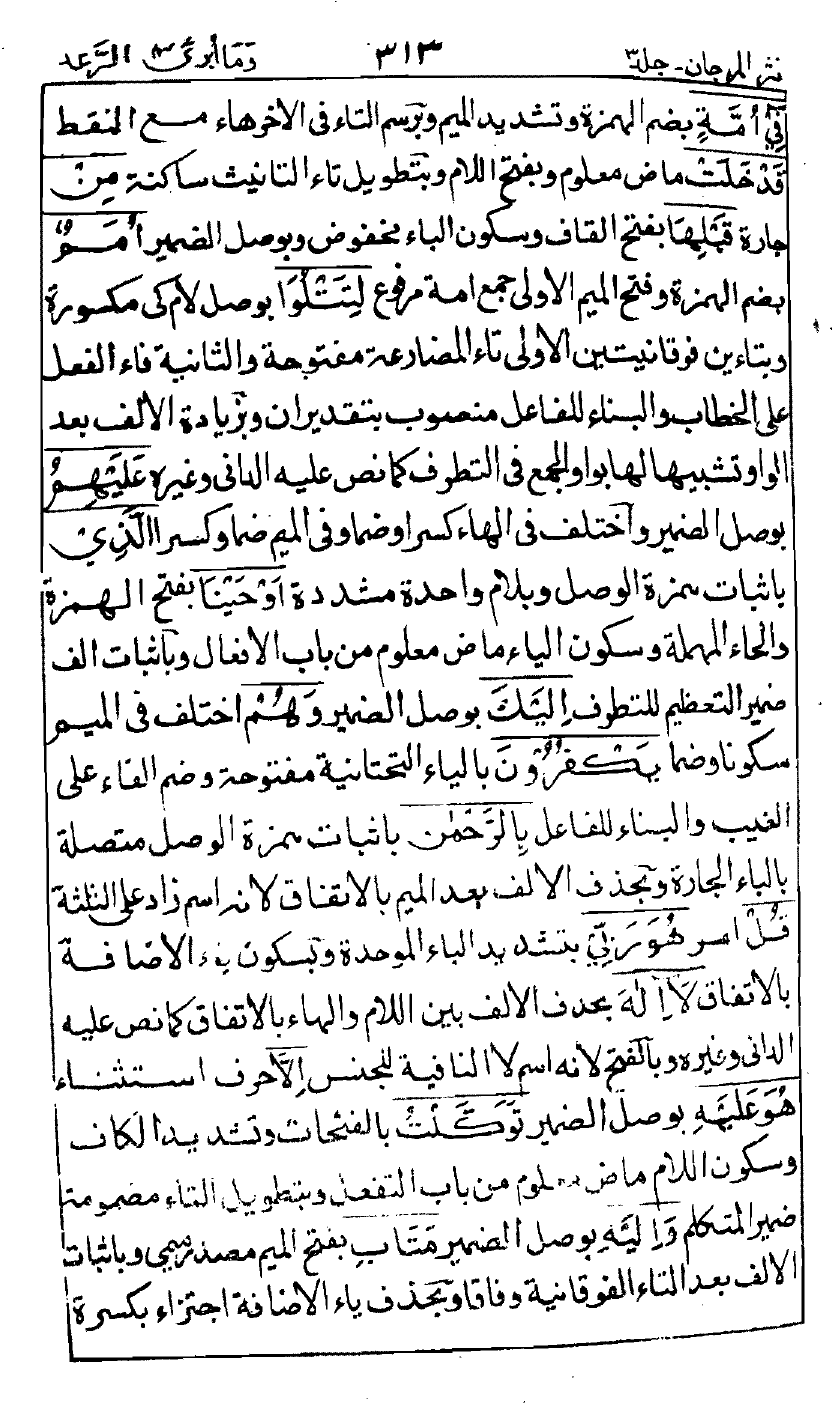 نثر المرجان - جلد ٣ ٣١٣ وما أبرئ ١٣ الرعد
فِيْ أُمَّةٍ بضم الهمزة وتشديد الميم وبرسم التاء فى الاخرهاء مع النقط
قَدْ خَلَتْ ماض معلوم وبفتح اللام وبتطويل تاء التانيث ساكنة مِنْ
جارة قَبْلِهَا بفتح القاف وسكون الباء مخفوض وبوصل الضمير اُمَمٌ
بضم الهمزة وفتح الميم الاولى جمع امة مرفوع لِتَتْلُوَا بوصل لام كى مكسورة
وبتاءين فوقانيتين الاولى تاء المضارعة مفتوحة والثانية فاء الفعل
على الخطاب والبناء للفاعل منصوب بتقدير ان وبزيادة الالف بعد
الواو تشبيها لها بواو الجمع فى التطرف كما نص عليه الدانى وغيره عَلَيْهِمُ
بوصل الضمير واختلف فى الهاء كسرا وضما وفى الميم ضما وكسرا الَّذِيْ
باثبات همزة الوصل وبلام واحدة مشددة اَوْحَيْنَا بفتح الهمزة
والحاء المهملة وسكون الياء ماض معلوم من باب الافعال وباثبات الف
ضمير التعظيم للتطرف اِلَيْكَ بوصل الضمير وَهُمْ اختلف فى الميم
سكونا وضما يَكْفُرُوْنَ بالياء التحتانية مفتوحة وضم الفاء على
الغيب والبناء للفاعل بِالرَّحْمٰنِ باثبات همزة الوصل متصلة
بالباء الجارة وبحذف الالف بعد الميم بالاتفاق لانه اسم زاد على الثلثة
قُلْ امر هُوَ رَبِّيْ بتشديد الباء الموحدة وبسكون ياء الاضافة
بالاتفاق لَا اِلٰهَ بحذف الالف بين اللام والهاء بالاتفاق كما نص عليه
الدانى وغيره وبالفتح لانه اسم لا النافية للجنس اِلَّا حرف استثناء
هُوَ عَلَيْهِ بوصل الضمير تَوَكَّلْتُ بالفتحات وتشديد الكاف
وسكون اللام ماض معلوم من باب التفعل وبتطويل التاء مضمومة
ضمير المتكلم وَاِلَيْهِ بوصل الضمير مَتَابِ بفتح الميم مصدر ميمي وباثبات
الالف بعد التاء الفوقانية وفاقا وبحذف ياء الاضافة اجتزاء بكسرة